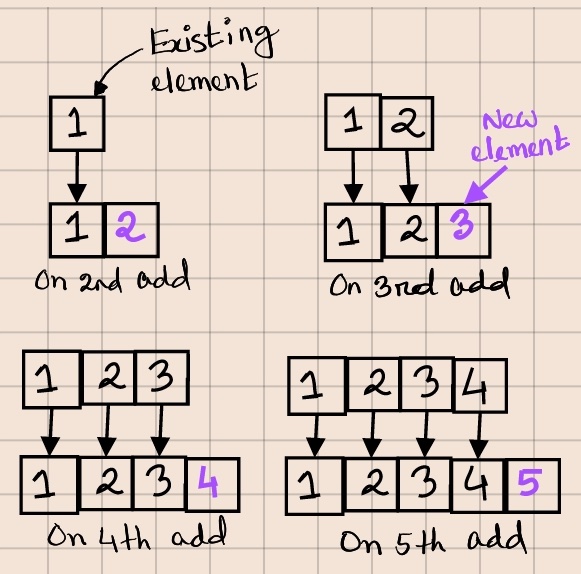 Existing
element
1
1 2
On 2nd add
1 2
New
element
1 2 3
On 3rd add
1 2 3
1 2 3 4
On 4th add
1 2 3 4
1 2 3 4 5
On 5th add